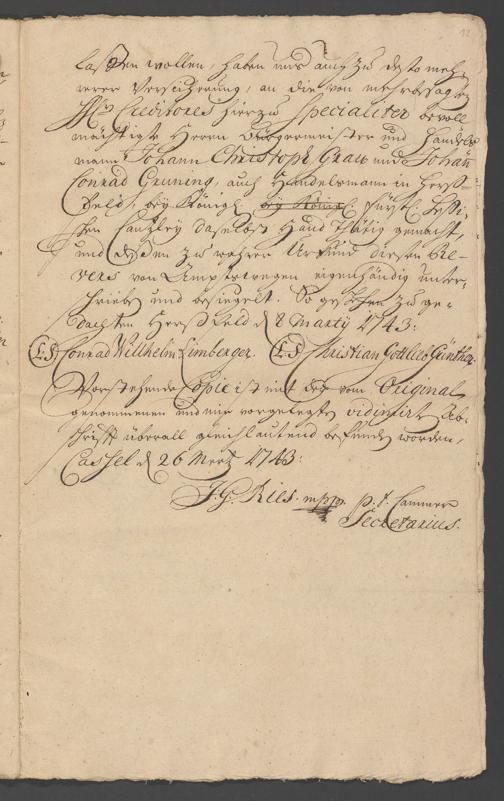 12
laßen wollen, haben wir auch zu desto meh-
rerer Versicherung, an die von mehrbesagten
H. Creditores hierzu Specialiter bevoll
mächtigte Herrn Bürgermeister und Handels
mann Johann Christoph Grau und Johañ
Conrad Gruning, auch Handelsmann in Herß-
feld, bey Königl. bey Königl. fürstl. Heßi-
schen Cantzley daselbst Hand Thätig gemacht,
und deßen zu wahrer Urkund diesen Re-
vers von Ampts wegen eigenhändig unter-
schrieben und besiegelt. So geschehen zu ge-
dachten Herßfeld d. 8 Martij 1743:
L.S Conrad Willhelm Limberger. L.S Christian Gottlieb Günther
Vorstehende Copie ist mit dem vom Original
genommenen und mir vorgelegten vidimirt Ab-
schrifft überall gleichlautend befunden worden,
Cassel d. 26 Mertz 1743:
J. G. Ries. mppr. p. t. Cammer
Secretarius.